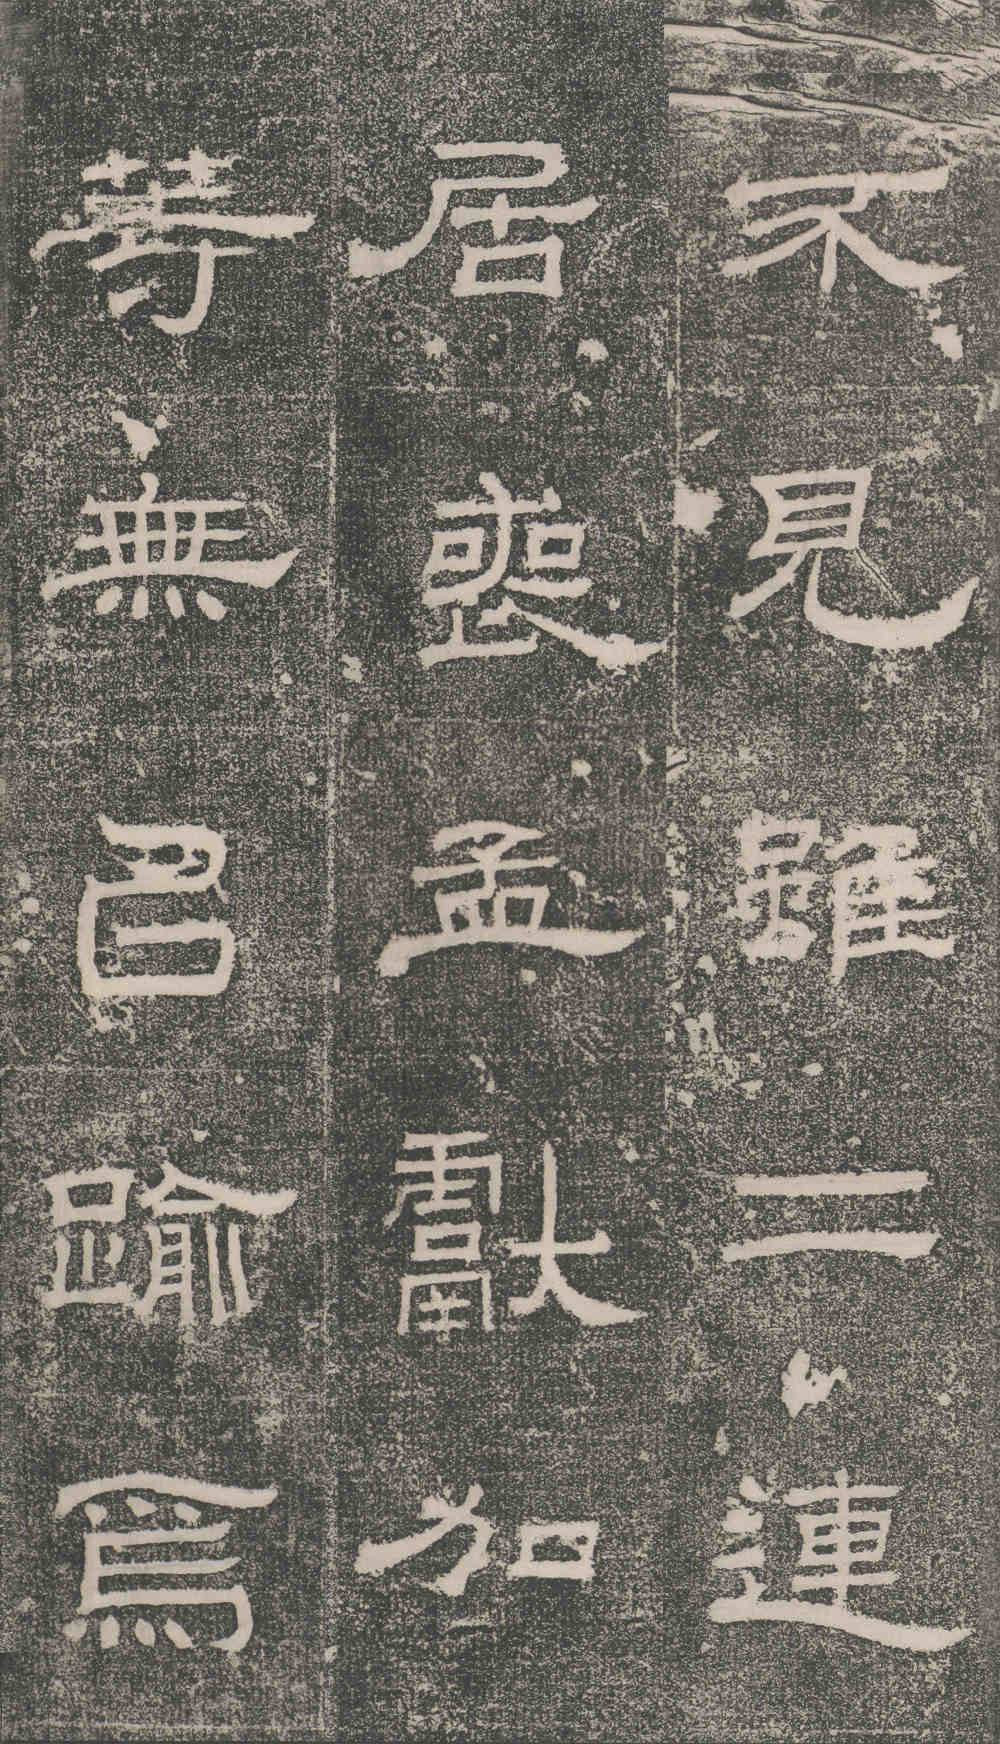 不見雖二連
居喪孟獻加
等無以踰爲